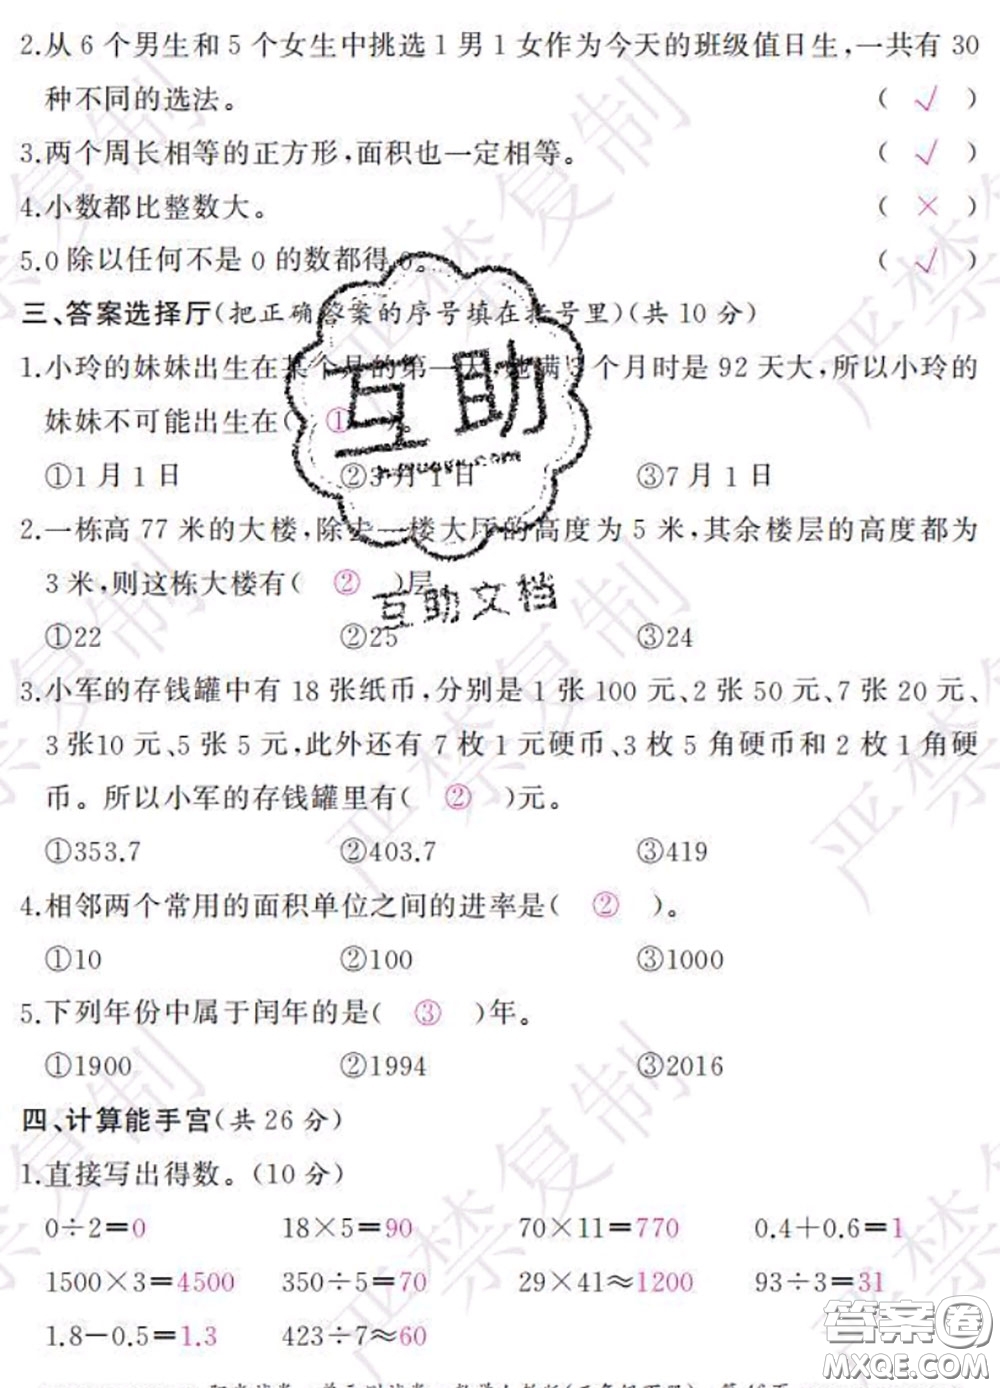 2.从 6 个男生和 5 个女生中挑选 1 男 1 女作为今天的班级值日生,一共有 30
种不同的选法。 ( √ )
3.两个周长相等的正方形,面积也一定相等。 ( √ )
4.小数都比整数大。 ( × )
5.0 除以任何不是 0 的数都得 0。 ( √ )
三、答案选择厅(把正确答案的序号填在括号里)(共 10 分)
1.小玲的妹妹出生在某个月的第一天,她满 3 个月时是 92 天大,所以小玲的
妹妹不可能出生在( ① )。
①1 月 1 日 ②3 月 1 日 ③7 月 1 日
2.一栋高 77 米的大楼,除去一楼大厅的高度为 5 米,其余楼层的高度都为
3 米,则这栋大楼有( ② )层
①22 ②25 ③24
3.小军的存钱罐中有 18 张纸币,分别是 1 张 100 元、2 张 50 元、7 张 20 元、
3 张10 元、5 张 5 元,此外还有 7 枚 1 元硬币、3 枚 5 角硬币和 2 枚 1 角硬
币。所以小军的存钱罐里有( ② )元。
①353.7 ②403.7 ③419
4.相邻两个常用的面积单位之间的进率是( ② )。
①10 ②100 ③1000
5.下列年份中属于闰年的是( ③ )年。
①1900 ②1994 ③2016
四、计算能手宫(共 26 分)
1.直接写出得数。(10 分)
0÷2=0 18×5=90 70×11=770 0.4+0.6=1
1500×3=4500 350÷5=70 29×41≈1200 93÷3=31
1.8-0.5=1.3 423÷7≈60
互助
互助文档
严禁复制
答案圈
MXQE.COM